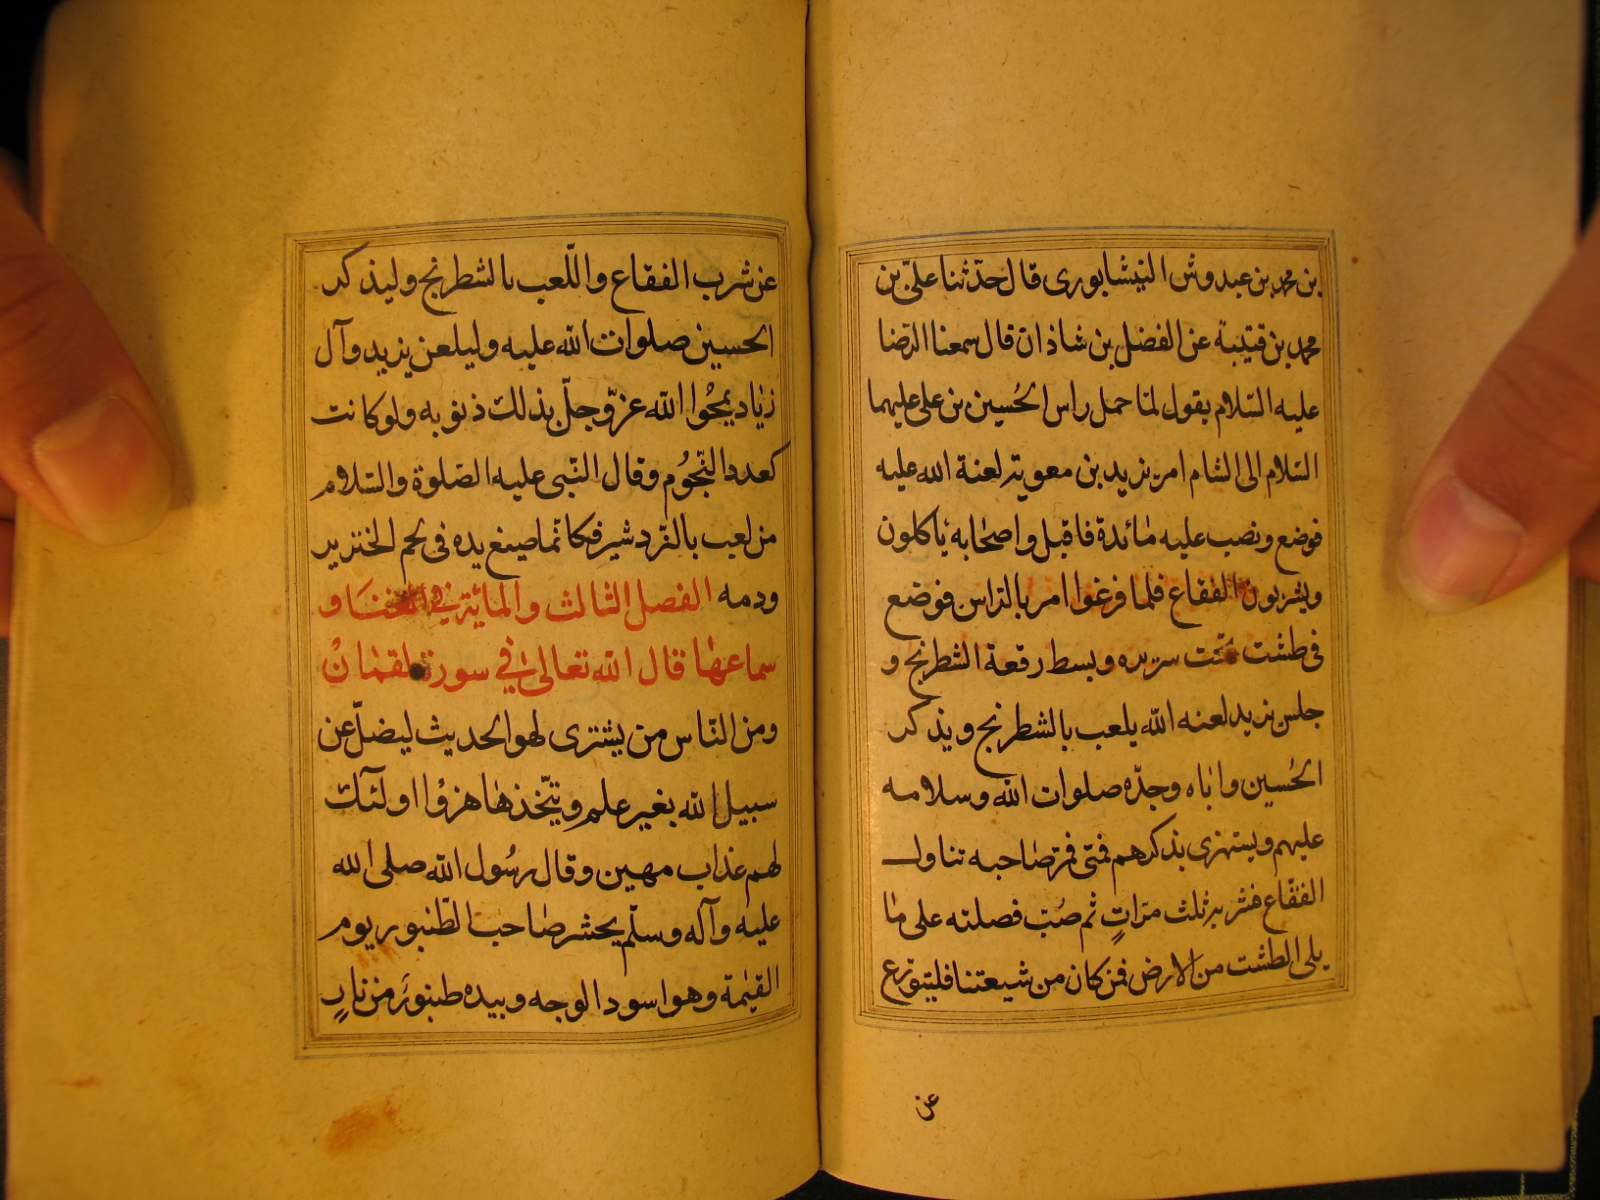 بن محمد بن عبدوش النيشابورى قال حدّثنا علىّ بن
محمد بن قتيبة عن الفضل بن شاذان قال سمعنا الرّضا
عليه السّلام يقول لمّا حمل راس الحُسين بن على عليهما
السّلام الى الشام امر يزيد بن معوية لعنة الله عليه
فوضع ونصب عليه مائدة فاقبل واصحابه ياكلون
ويشربون الفقاع فلما فرغوا امر بالرّاس فوضع
فى طشت تحت سريره وبسط رقعة الشطرنج و
جلس يزيد لعنه الله يلعب بالشطرنج ويذكر
الحُسين واباه وجدّه صلوات الله وسلامه
عليهم ويستهزى بذكرهم فمتى قمر صاحبه تناول
الفقّاع فشربه ثلث مرّاتٍ ثم صُبّ فصلته على ما
يلى الطشت من الارض فمن كان من شيعتنا فليتورّع
عن
عن شرب الفقاع واللّعب بالشطرنج وليذكر
الحسين صلوات الله عليه وليلعن يزيد وآل
زياد يمحُوا الله عزّ وجلّ بذلك ذنوبه ولو كانت
كعدد النّجُوم وقال النّبى عليه الصّلوة والسّلام
من لعب بالنّرد شير فكانّما صبغ يده فى لحم الخنزير
ودمه الفصل الثالث والمائة في الغنا و
سماعها قال الله تعالى في سورة لقمان
ومن النّاس من يشترى لهو الحديث ليضلّ عن
سبيل الله بغير علمٍ ويتّخذها هزوُا اولئك
لهم عذاب مهين وقال رسُول الله صلى الله
عليه وآله وسلّم يحشر صاحب الطّنبور يوم
القيمة وهو اسود الوجه وبيده طنبورَ من نارٍ